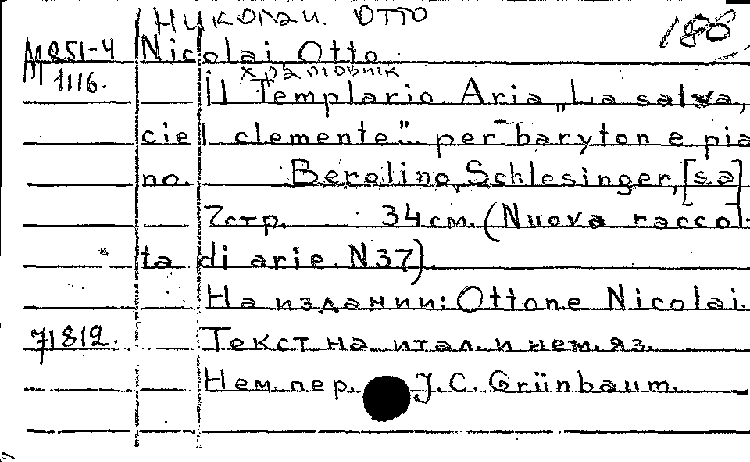 Николаи. Отто
188
М251-4 Nicolai Otto.
1116. храмовник
Il Templario. Aria „La salva,
ciel clemente". per baryton e pia
no. Berolino, Schlesinger, [s.a]
7стр. 34 см. (Nuova raccol
ta di arie. N37).
На издании: Ottone Nicolai.
71812. Текст на итал. и нем. яз.
Нем. пер. J. C. Grünbaum.